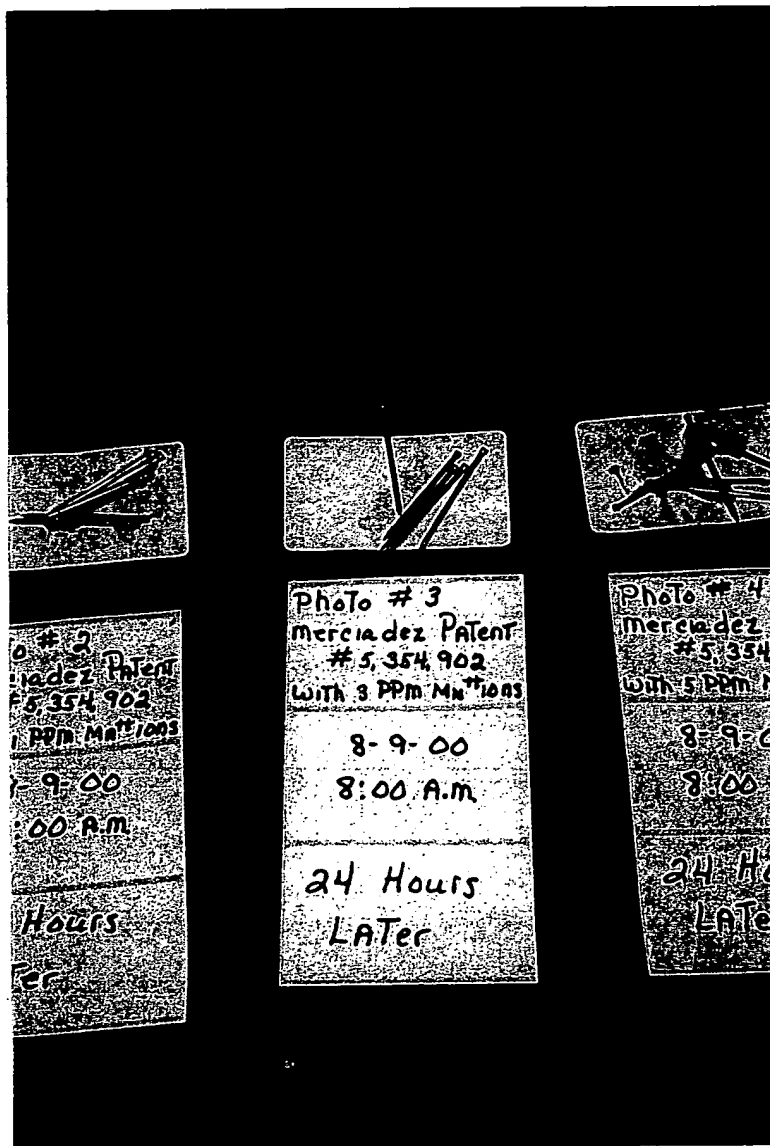 o # 2
iadez PATent
#5,354,902
1 PPM Mn⁺⁺ions
9-00
:00 A.m
Hours
Ter
PhoTo # 3
merciadez PATenT
#5,354,902
wiTh 3 PPm Mn⁺⁺ions
8-9-00
8:00 A.m
24 Hours
LATer
PhoTo # 4
merciadez
#5,354
wiTh 5 PPm M
8-9-0
8:00
24 Ho
LATe